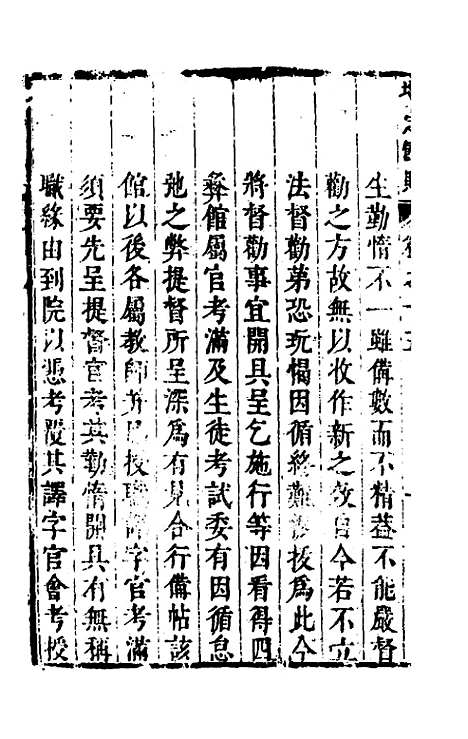 增定館則 卷之十五
生勤惰不一雖備數而不精蓋不能嚴督
勸之方故無以收作新之效自今若不立
法督勸第恐玩愒因循終難援為此今
將督勸事宜開具呈乞施行等因看得四
彝館屬官考滿及生徒考試委有因循怠
弛之弊提督所呈深為有見合行備帖該
館以後各屬教師并已授職譯字官考滿
須要先呈提督官考其勤惰開具有無稱
職緣由到院以憑考覆其譯字官會考授